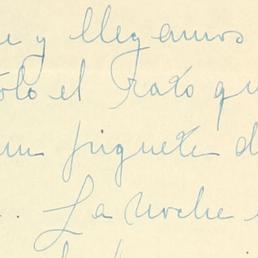 e y llegamos
ólo el rato qu
un juguete d
.. La noche